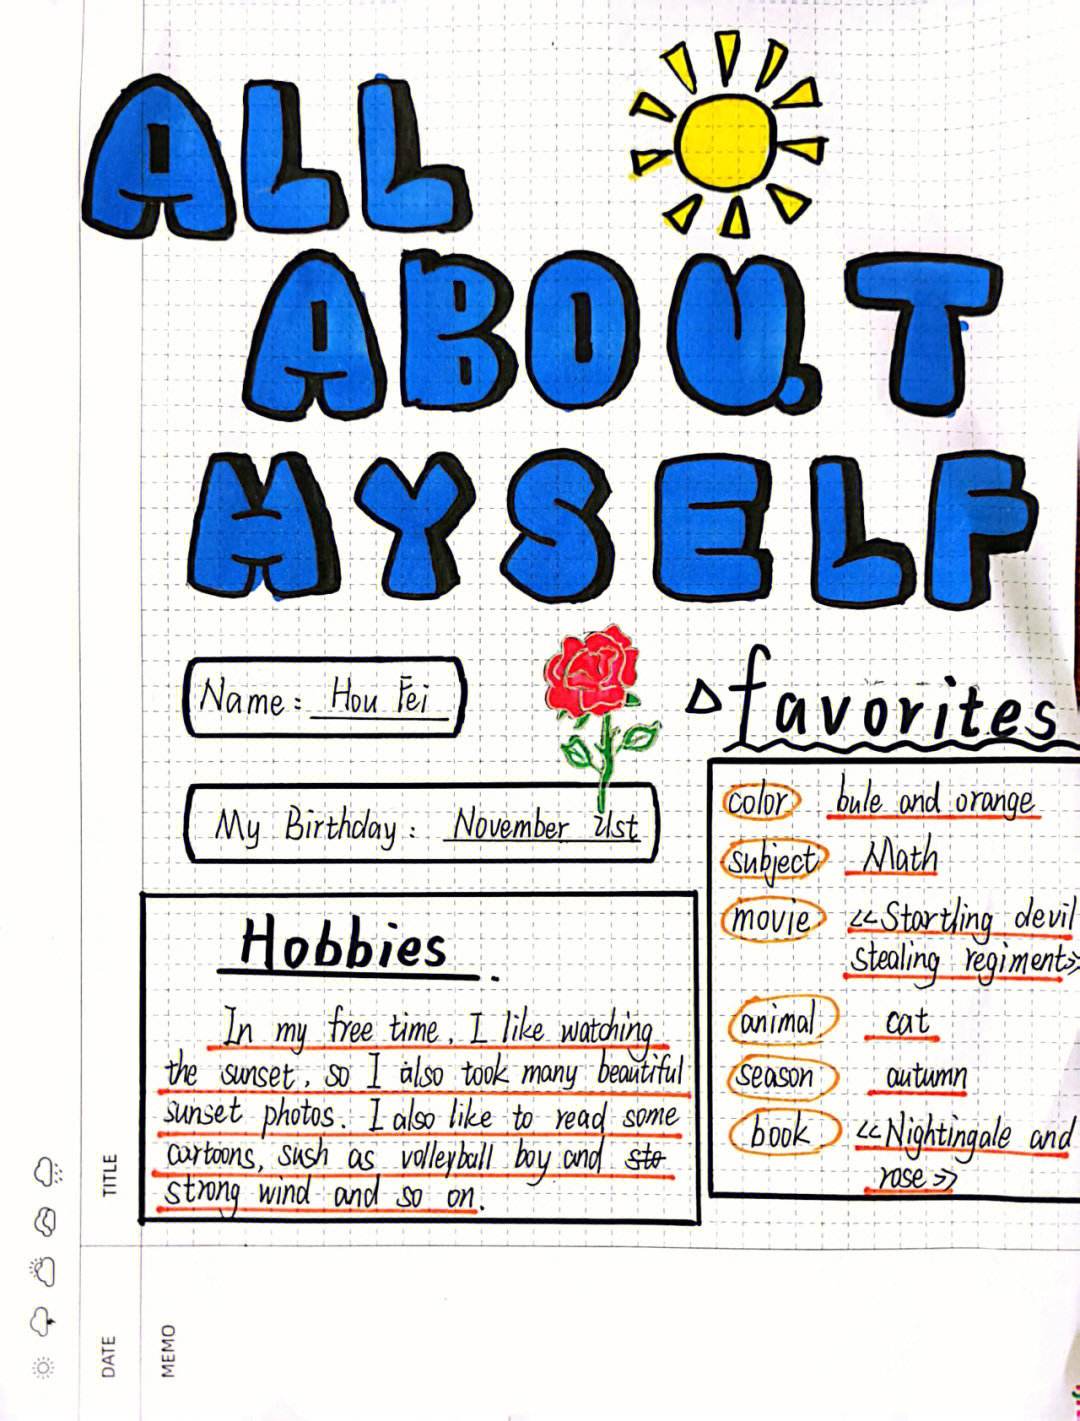 ALL
ABOUT
MYSELF
Name: Hou Fei
My Birthday: November 21st
Hobbies.
In my free time, I like watching
the sunset, so I also took many beautiful
sunset photos. I also like to read some
cartoons, sush as volleyball boy and sto
strong wind and so on.
favorites
color bule and orange
subject Math
movie <<Startling devil
stealing regiment>>
animal cat
season autumn
book <<Nightingale and
rose>>
TITLE
DATE
MEMO